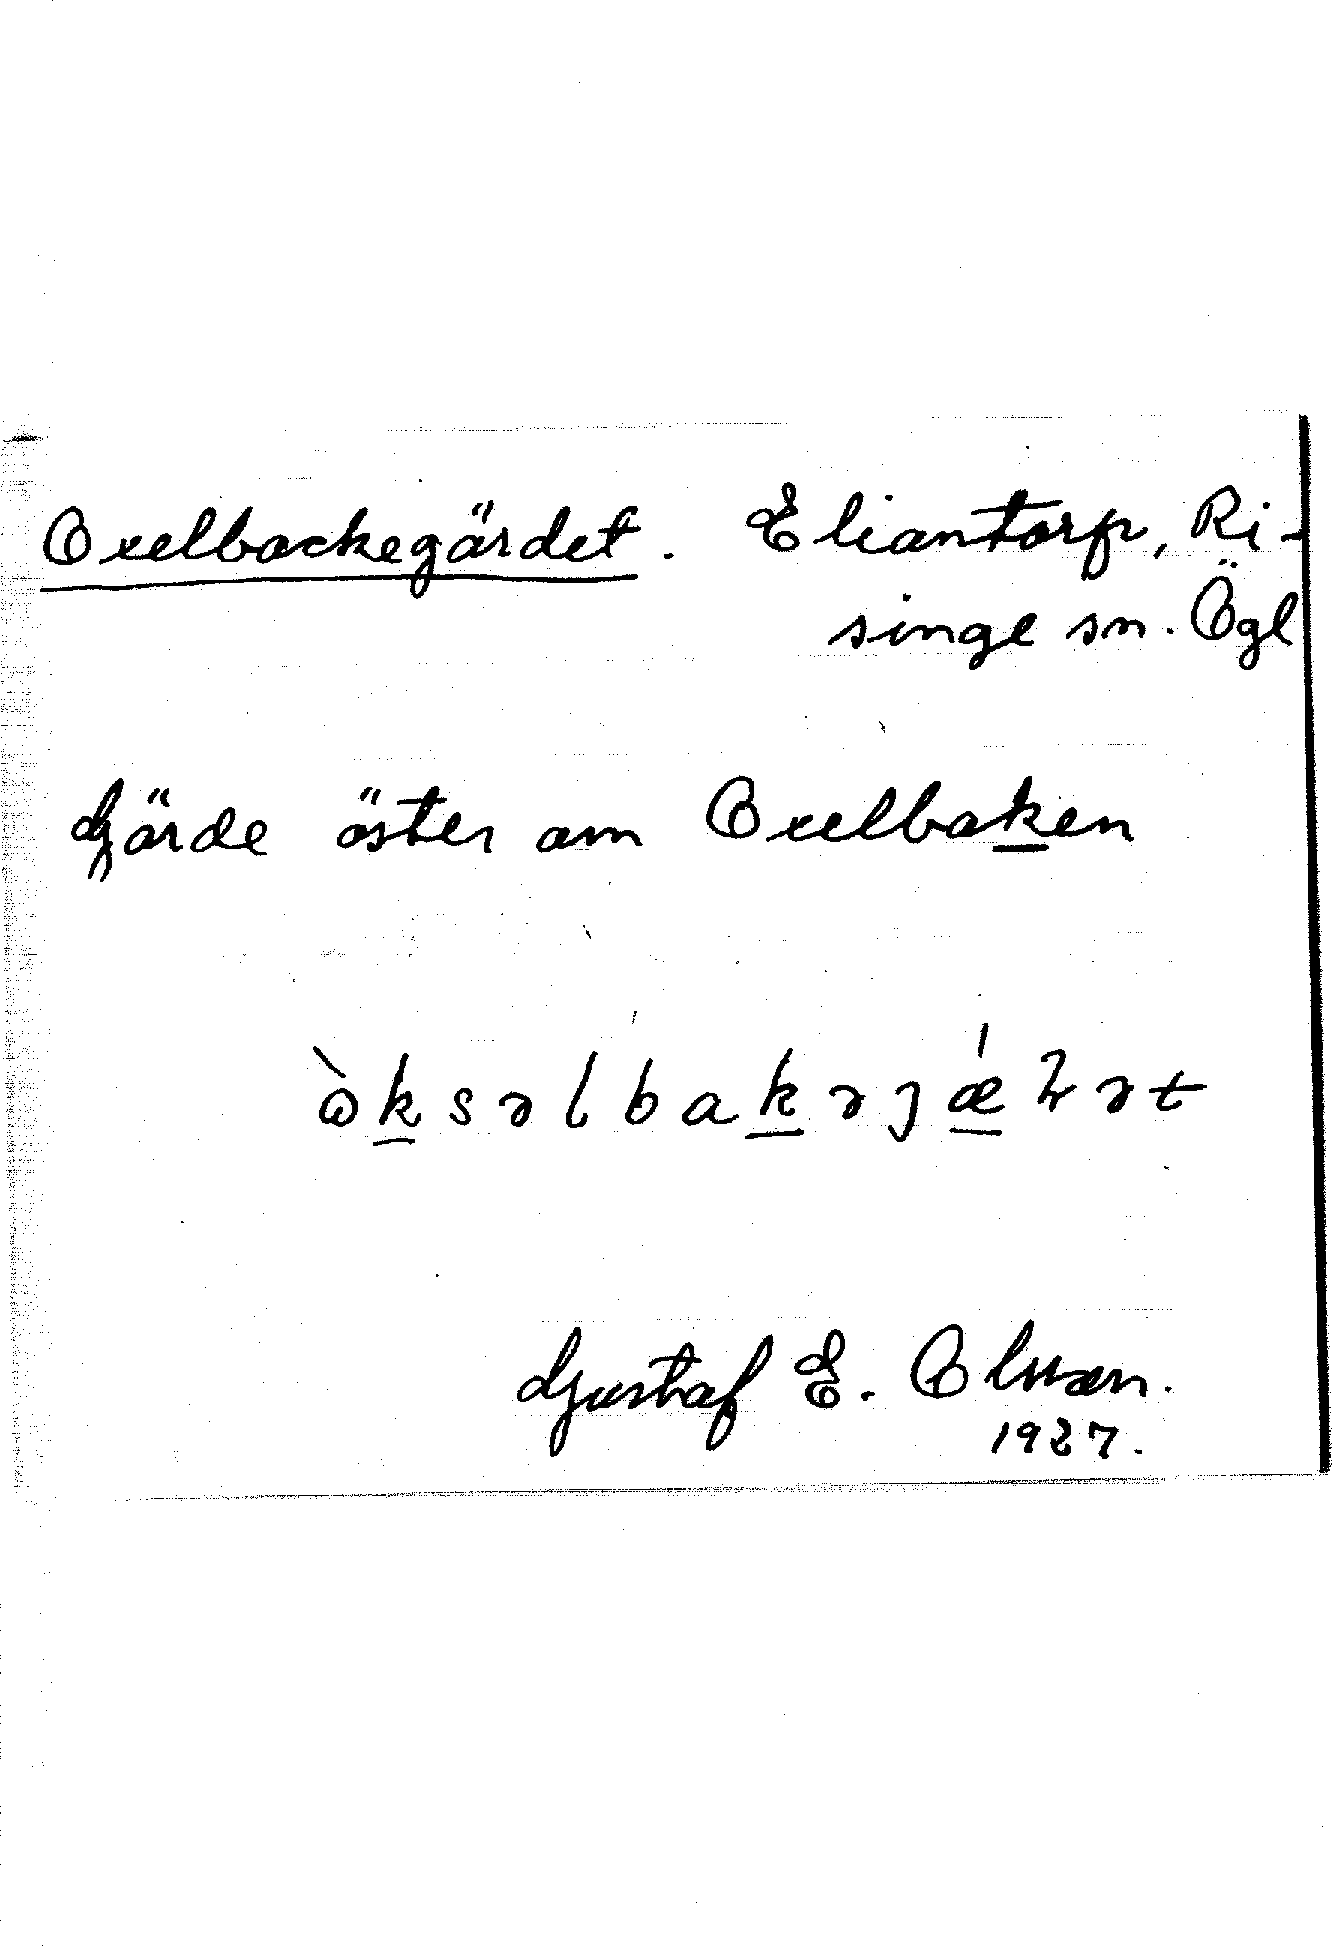 Oxelbackegärdet. Eliantorp, Ri-
singe sn. Ögl
Gärde öster om Oxelbaken
òksəlbakəjǽɖət
Gustaf E. Olsson.
1927.